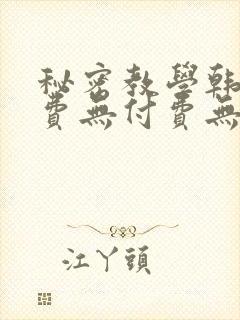 秘密教學韓
費無付費無
江丫頭